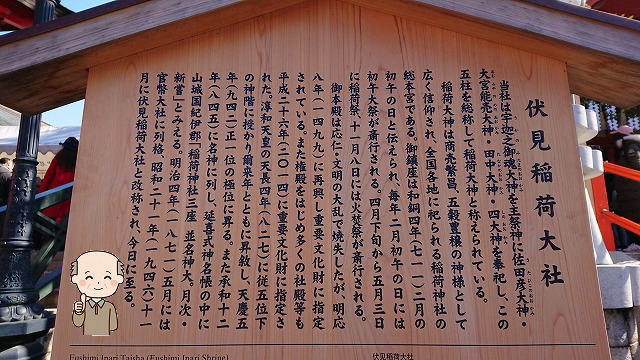 伏見稲荷大社
当社は宇迦之御魂大神を主祭神に佐田彦大神・
大宮能売大神・田中大神・四大神を奉祀し、この
五柱を総称して稲荷大神と称えられている。
稲荷大神は商売繁昌、五穀豊穣の神様として
広く信仰され、全国各地に祀られる稲荷神社の
総本宮である。御鎮座は和銅四年(七一一)二月の
初午の日と伝えられ、毎年二月初午の日には
初午大祭が斎行される。四月下旬から五月三日
に稲荷祭、十一月八日には火焚祭が斎行される。
御本殿は応仁・文明の大乱で焼失したが、明応
八年(一四九九)に再興し重要文化財に指定
されている。また権殿をはじめ多くの社殿等も
平成二十六年(二〇一四)に重要文化財に指定さ
れた。淳和天皇の天長四年(八二七)に従五位下
の神階に授かり爾来年とともに昇叙し、天慶五
年(九四二)正一位の極位に昇る。また承和十二
年(八四五)に名神に列し、延喜式神名帳の中に
山城国紀伊郡「稲荷神社三座 並名神大。月次・
新嘗」とみえる。明治四年(一八七一)五月には
官幣大社に列格、昭和二十一年(一九四六)十一
月に伏見稲荷大社と改称され、今日に至る。
Fushimi Inari Taisha (Fushimi Inari Shrine)
伏见稻荷大社